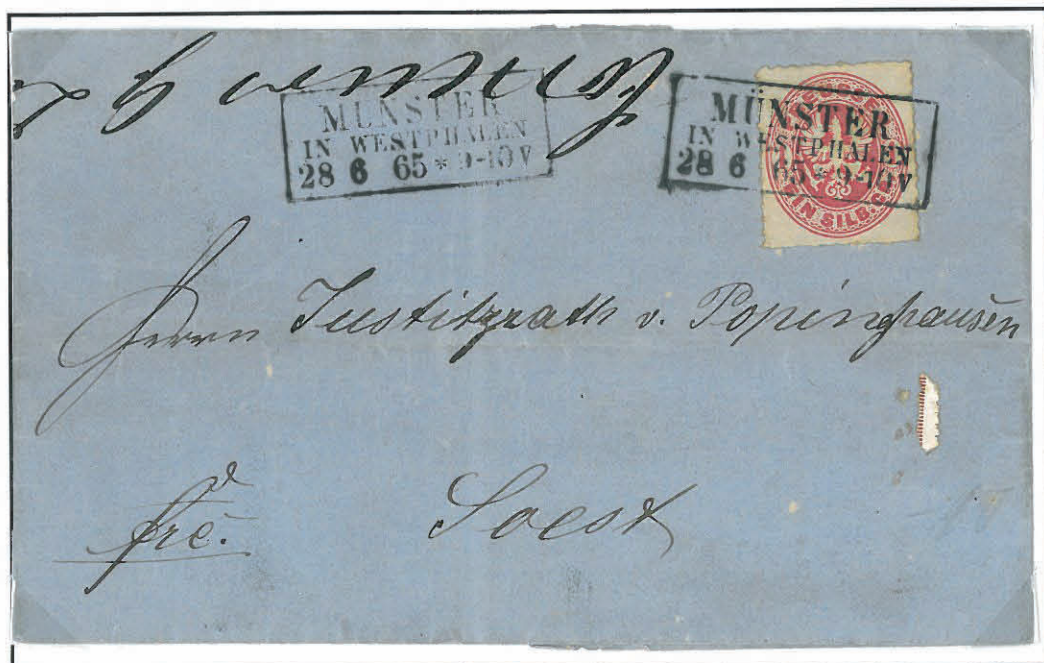 MÜNSTER
IN WESTPHALEN
28 6 65 * 9-10V
MÜNSTER
IN WESTPHALEN
28 6 65 * 9-10V
EIN SILB. GR
Herrn Justitzrath v. Popinghausen
frc. Soest